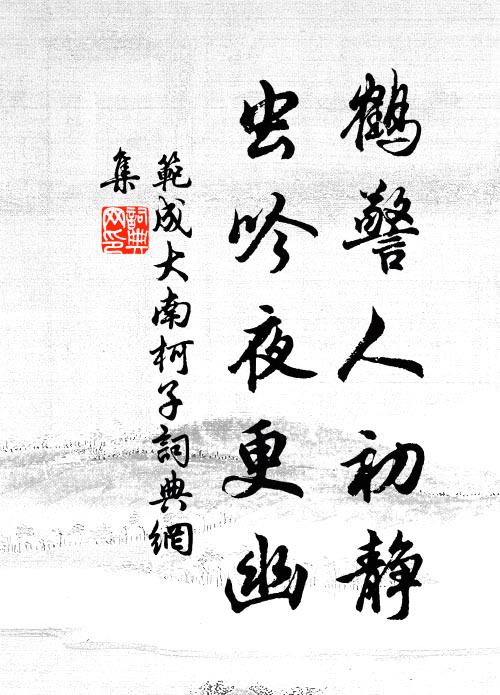 鹤警人初静
虫吟夜更幽
範成大南柯子詞典網
集
詞典
网印